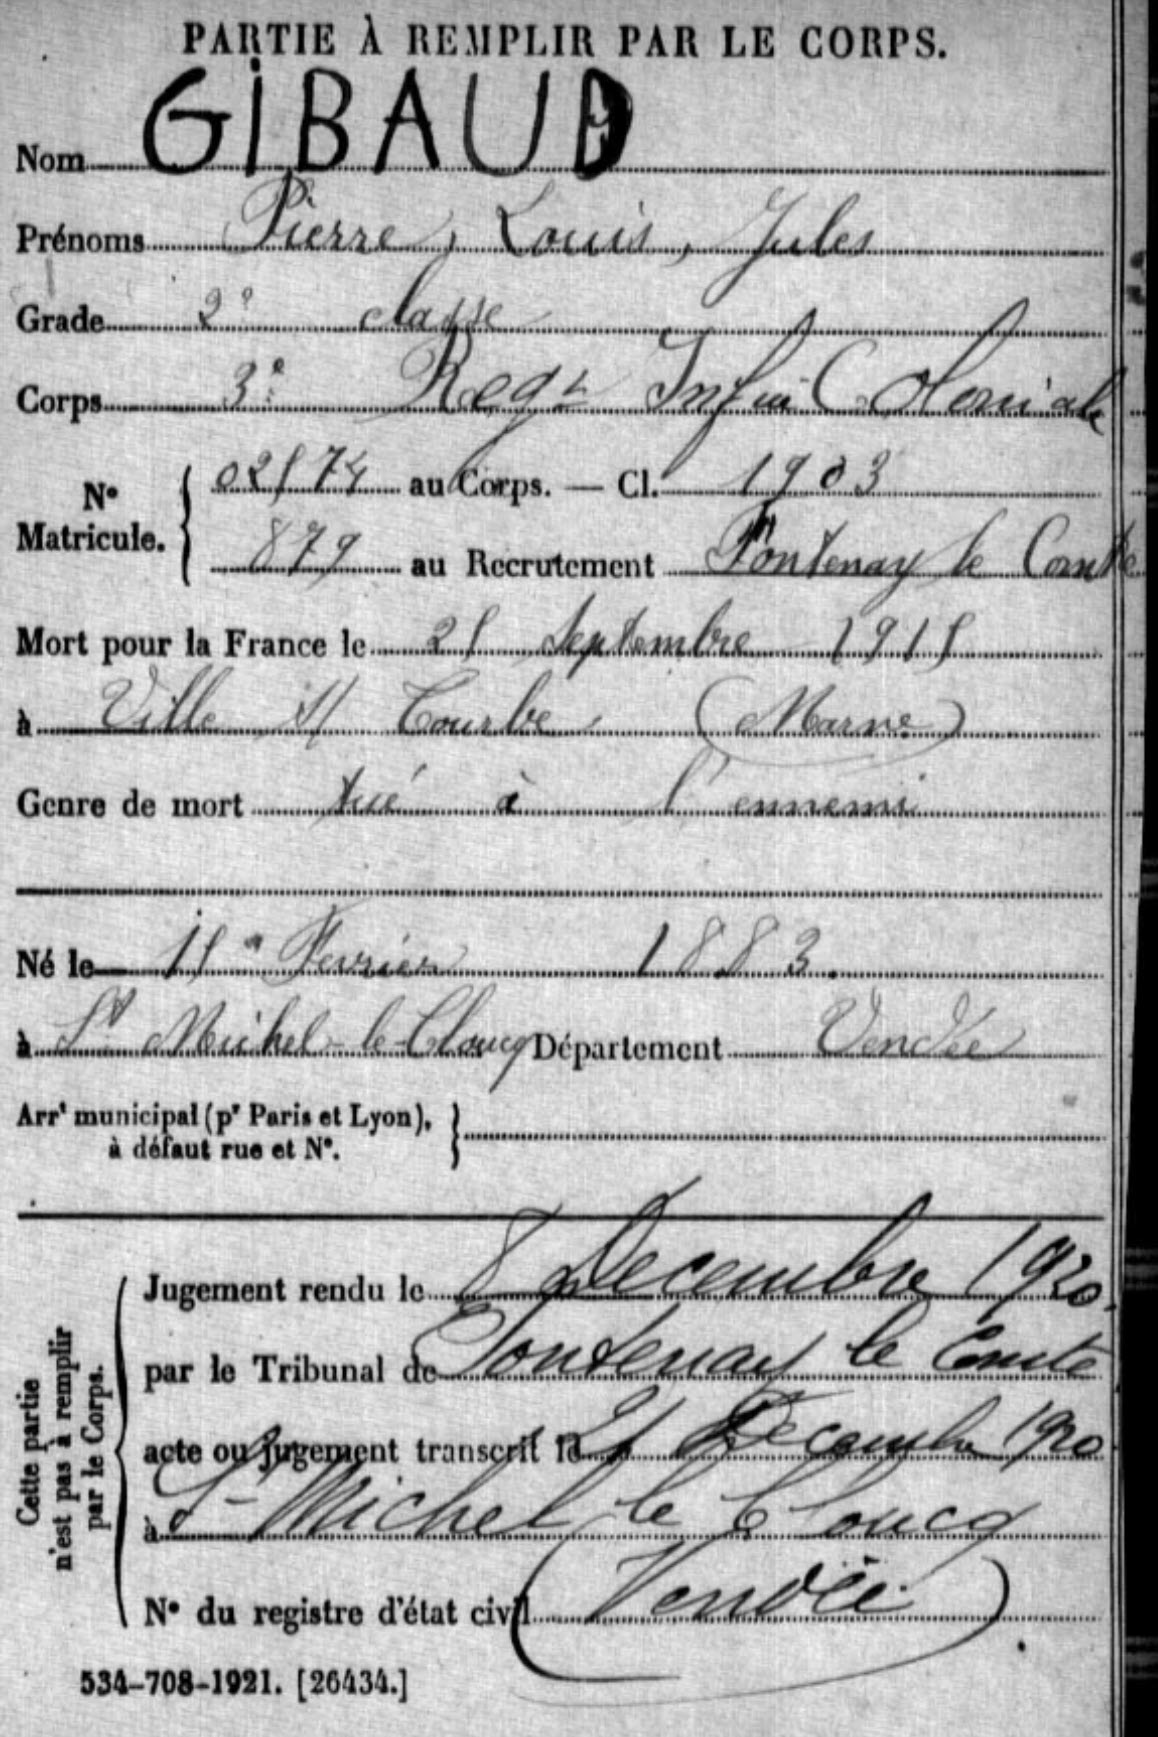 PARTIE À REMPLIR PAR LE CORPS.
Nom GIBAUD
Prénoms Pierre, Louis, Jules
Grade 2e classe
Corps 3e Regt Infie Coloniale
No Matricule. { 02574 au Corps. — Cl. 1903
879 au Recrutement Fontenay le Comte
Mort pour la France le 25 Septembre 1915
à Ville s/ Tourbe (Marne)
Genre de mort tué à l'ennemi
Né le 15 Fevrier 1883.
à St Michel-le-Cloucq Département Vendée
Arrt municipal (pr Paris et Lyon),
à défaut rue et No.
Cette partie
n'est pas à remplir
par le Corps.
Jugement rendu le 8 Decembre 1920.
par le Tribunal de Fontenay le Comte
acte ou jugement transcrit le 21 Decembre 1920
à St Michel le Cloucq
No du registre d'état civil (Vendée)
534-708-1921. [26434.]